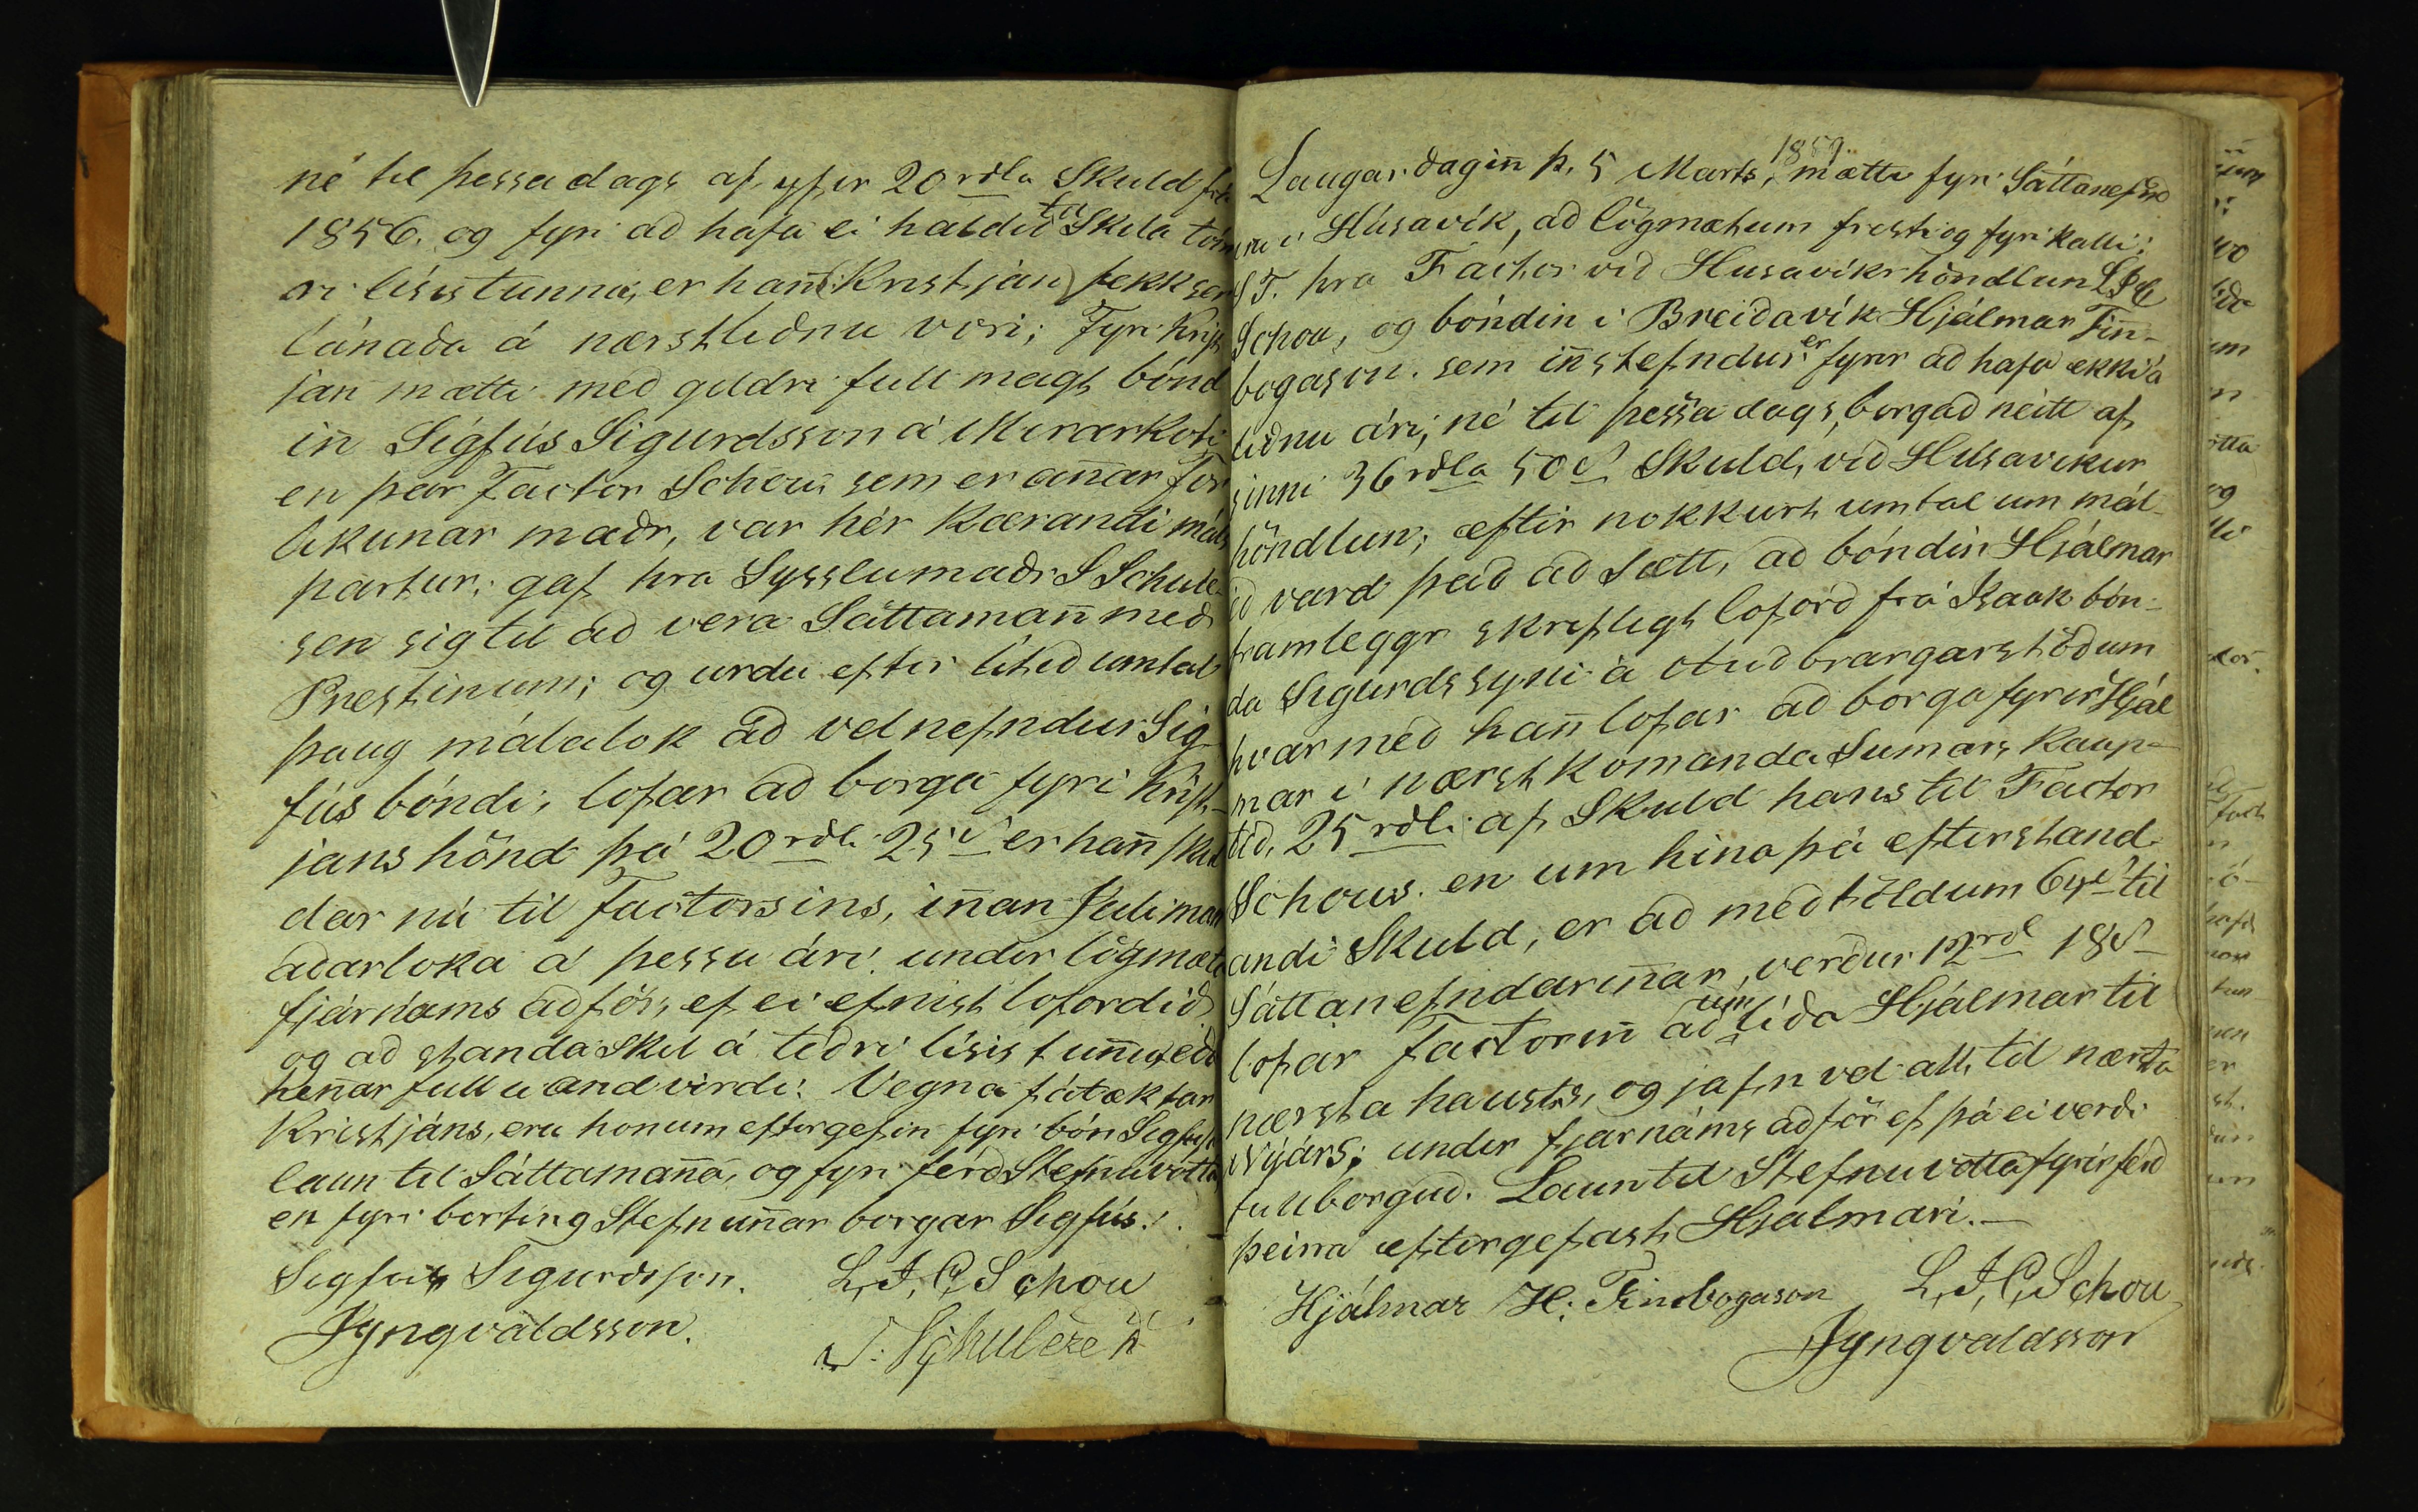 né til þessa dags af yfir 20 rdla Skuld frá
1856. og fyri að hafa ei haldið til Skila tóm
ri lísistunnu, er hann (Kristján) fekk sem
lánaða á nærstliðnu vori; Fyri Krist
jan mætti með gildri fullmagt bónd
in Sigfús Sigurdsson á Mirarkoti
en þar Factor Schou sem er annar For
likunar maðr, var hér Kærandi máls
partur; gaf hra Sysslumaðr S Schule-
sen sig til að vera Sáttamann með
Prestinum; og urdu eftir litið umtal
þaug málalok að velnefndur Sig
fús bóndi, lofar að borga fyri Krist-
jans hönd þá 20 rdl. 25 s er hann skul
dar nú til Factorsins, innan Juli mán
aðarloka á þessu ári. under lögmæta
fjárnáms aðför, ef ei efnist loforðið
og að standa Skil á tedri lísistunnu, eða
hennar fullu andvirdi. Vegna fátæktar
Kristjáns, eru honum eftirgefin fyri bón Sigfúsar
laun til Sáttamanna, og fyri ferð Stefnuvotta
en fyri birting Stefnunnar borgar Sigfús.
Sigfús Sigurdsson. L, J, C, Schou
JYngvaldsson. S. Schulesen
Laugardaginn þ. 5 Marts, 1859 mætti fyri Sáttanefnd
inni í Húsavík, að lögmætum fresti og fyrikalli:
S T. hra Factor við Husavíkrhöndlun L J C
Schou, og bóndin í Breiðavík Hjálmar Finn-
bogason. sem innstefndur er fyrir að hafa ekki á
liðnu ári, né til þessa dags, borgað neitt af
sinni 36 rdla 50 s Skuld, við Húsavíkur
höndlun; eftir nokkurt umtal um mál-
ið varð það að Sætt, að bóndin Hjálmar
framleggr skriflegt loforð frá Isaak bón-
da Sigurdssyni á Auðbrargarstöðum
hvar með hann lofar að borga fyrir Hjál
mar í nærstkomanda Sumars Kaup-
tíð, 25 rdli af Skuld hans til Factor
Schous. en um hina þá efterstand-
andi Skuld, er að meðtöldum 64 s til
Sáttanefndarinnar, verður 12 rd 18 s
lofar Factorinn að um líða Hjálmar til
nærsta hausts, og jafnvel allt til nærsta
Nýárs; under fjárnáms aðför ef þá ei verði
fullborguð. Laun til Stefnuvotta fyrir ferð
þeirra eftirgefast Hjalmari.-
Hjálmar H: Finnbogason L, J, C, Schou
JYngvaldsson